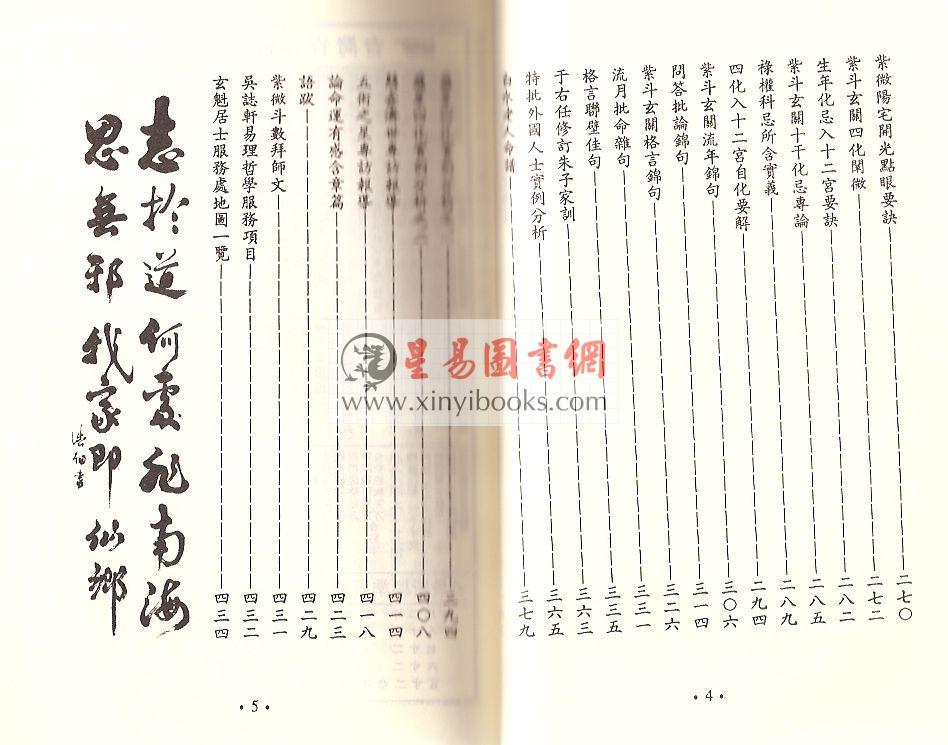 紫微陽宅開光點眼要訣 二七〇
紫斗玄關四化闡微 二七二
生年化忌入十二宮要訣 二八二
紫斗玄關十干化忌專論 二八五
祿權科忌所含實義 二八九
四化入十二宮自化要解 二九四
紫斗玄關流年錦句 三〇六
問答批論錦句 三一四
紫斗玄關格言錦句 三二六
流月批命雜句 三三一
格言聯璧佳句 三三五
于右任修訂朱子家訓 三六三
特批外國人士實例分析 三六五
三七九
•4•
三九四
四〇八
專訪報導 四一四
五術之星專訪報導 四一八
論命運有感含章篇 四二三
語跋 四二九
紫微斗數拜師文 四三一
吳誌軒易理哲學服務項目 四三二
玄魁居士服務處地圖一覽 四三四
志於道何處非南海
思無邪我家即仙鄉
•5•
星易圖書網
www.xinyibooks.com